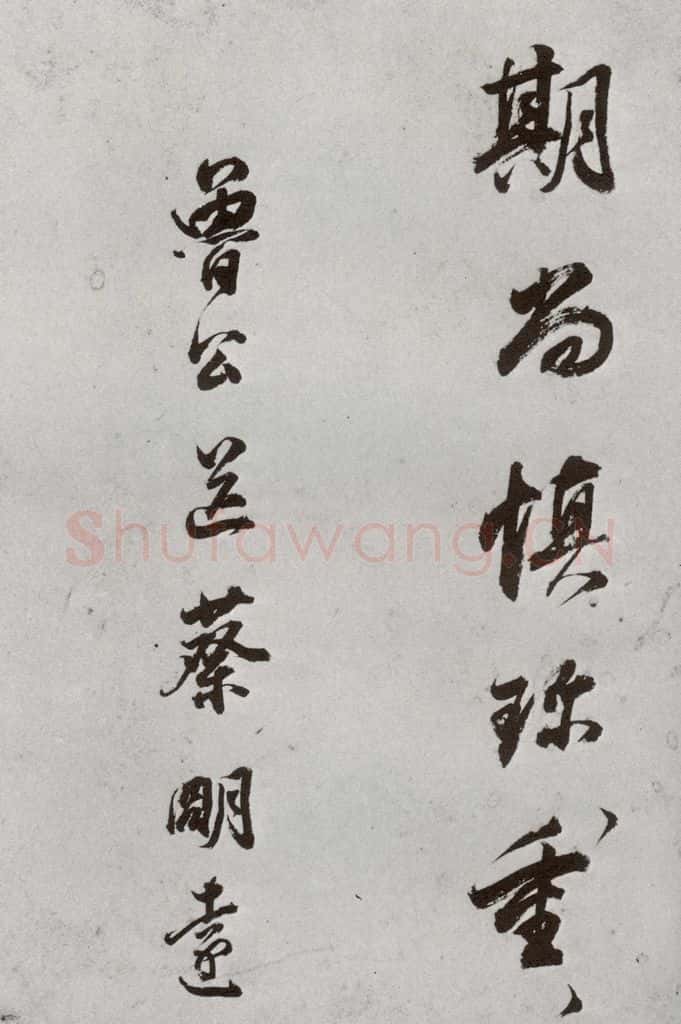 期尚慎珎重
魯公送蔡明遠
Shufawang.CN